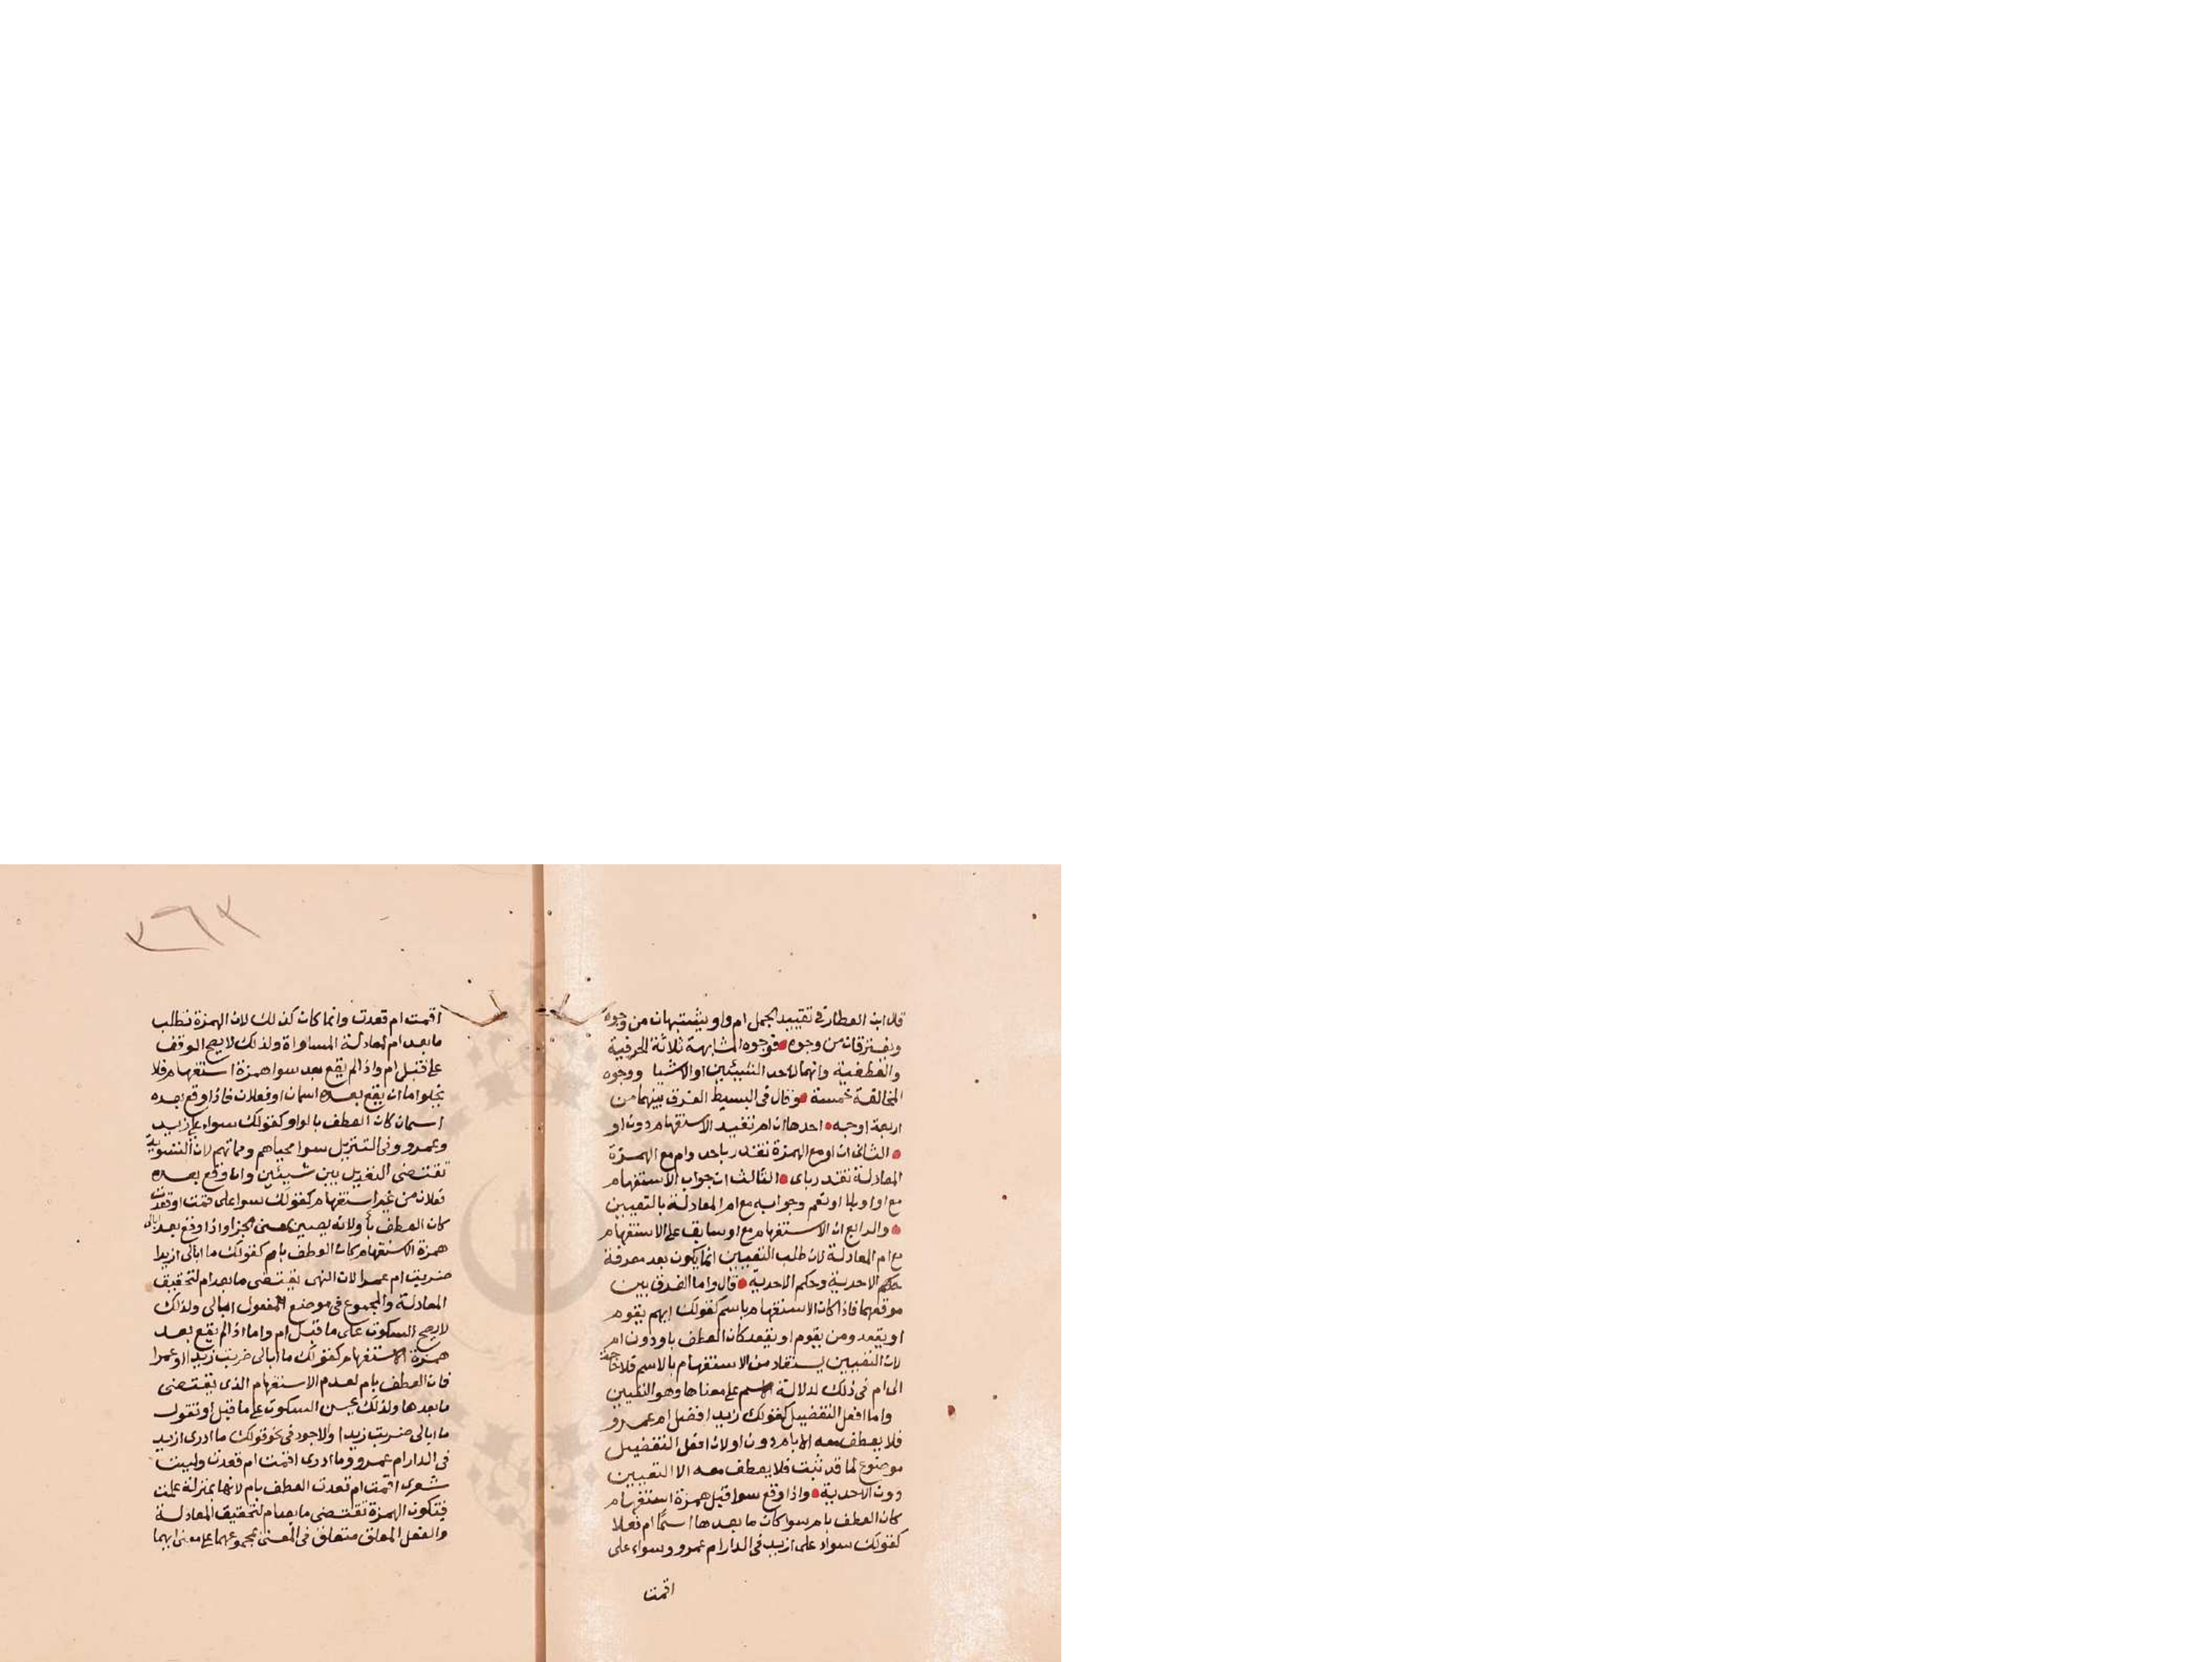 قال ابن العطار في تقييد الجمل ام واو يشتبهان من وجوه
ويفترقان من وجوه فوجوه المشابهة ثلاثة الحرفية
والعطفية وانهما لاحد الشيئين او الاشيا ووجوه
المخالفة خمسة وقال في البسيط الفرق بينهما من
اربعة اوجه احدها ان ام تفيد الاستفهام دون او
الثاني ان او مع الهمزة تقدر باحد وام مع الهمزة
المعادلة تقدر باى الثالث ان جواب الاستفهام
مع او بلا او نعم وجوابه مع ام المعادلة بالتعيين
والرابع ان الاستفهام مع او سابق على الاستفهام
مع ام المعادلة لان طلب التعيين انما يكون بعد معرفة
حكم الاحدية وحكم الاحدية قال واما الفرق بين
موقعهما فاذا كان الاستفهام باسم كقولك ايهم يقوم
او يقعد ومن يقوم او يقعد كان العطف باو دون ام
لان التعيين يستفاد من الاستفهام بالاسم فلا حاجة
الى ام في ذلك لدلالة الاسم على معناها وهو التعيين
واما افعل التفضيل كقولك زيد افضل ام عمرو
فلا يعطف معه الا بام دون او لان افعل التفضيل
موضوع لما قد ثبت فلا يعطف معه الا التعيين
دون الاحدية واذا وقع سوا قبل همزة استفهام
كان العطف بام سوا كان ما بعدها اسما ام فعلا
كقولك سواء على ازيد في الدار ام عمرو وسواء على
اقمت
٣٦٣
اقمت ام قعدت وانما كان كذلك لان الهمزة تطلب
ما بعد ام لمعادلة المساواة ولذلك لا يصح الوقف
على قبل ام واذا لم يقع بعد سوا همزة استفهام فلا
يخلوا اما ان يقع بعده اسمان او فعلان فاذا وقع بعده
اسمان كان العطف بالواو كقولك سواء على زيد
وعمرو وفي التنزيل سوا محياهم ومماتهم لان التسوية
تقتضى التعديل بين شيئين وان وقع بعده
فعلان من غير استفهام كقولك سوا على قمت او قعدت
كان العطف باو لانه يصير بمعنى الجزا واذا وقع بعد ابالى
همزة الاستفهام كان العطف بام كقولك ما ابالى ازيدا
ضربت ام عمرا لان الهمزة يقتضى ما بعد ام لتحقيق
المعادلة والمجموع في موضع المفعول ابالى ولذلك
لا يصح السكوت على ما قبل ام واما اذا لم يقع بعد
همزة الاستفهام كقولك ما ابالى ضربت زيدا او عمرا
فان العطف بام لعدم الاستفهام الذى يقتضى
ما بعدها ولذلك يحسن السكوت على ما قبل او تقول
ما ابالى ضربت زيدا والاجود في نحو قولك ما ادرى ازيد
في الدار ام عمرو وما ادرى اقمت ام قعدت وليت
شعرى اقمت ام قعدت العطف بام لانها بمنزلة علمت
فتكون الهمزة تقتضى ما بعد ام لتحقيق المعادلة
والفعل المعلق متعلق في المعنى بمجموعهما على معنى ايهما